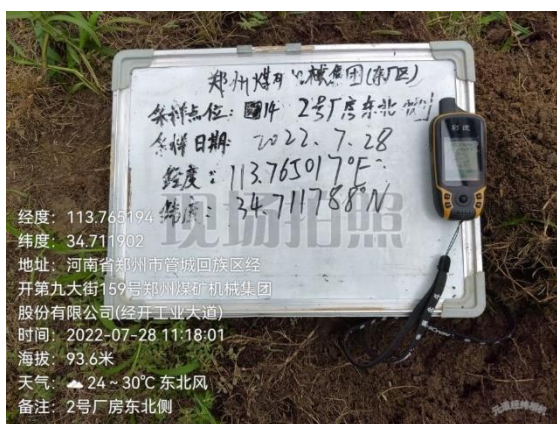 郑州煤矿机械集团(东厂区)
采样点位: 14 2号厂房东北侧
采样日期: 2022.7.28
经度: 113.765017°E
纬度: 34.711788°N
现场拍照
经度: 113.765194
纬度: 34.711902
地址: 河南省郑州市管城回族区经
开第九大街159号郑州煤矿机械集团
股份有限公司(经开工业大道)
时间: 2022-07-28 11:18:01
海拔: 93.6米
天气: 24~30℃ 东北风
备注: 2号厂房东北侧
元道经纬相机